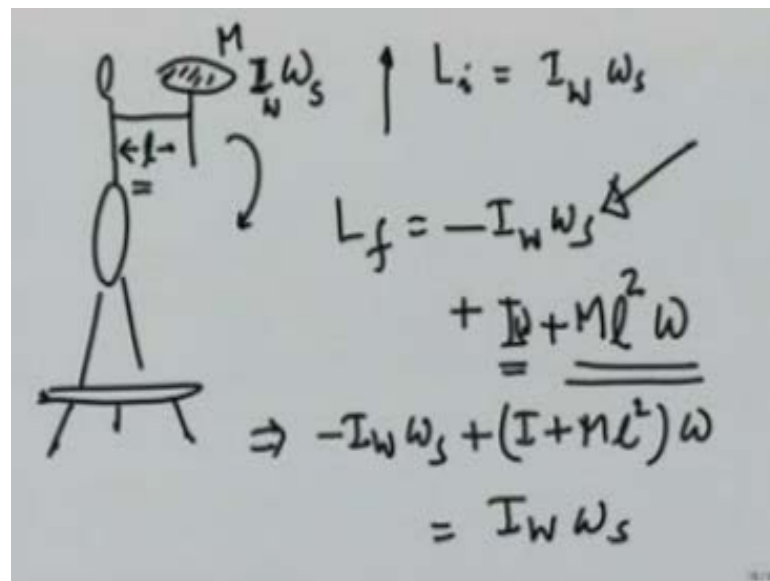 M
I_W ω_s
L_i = I_W ω_s
←l→
L_f = -I_W ω_s
+ Iω + Ml² ω
⇒ -I_W ω_s + (I + Ml²) ω
= I_W ω_s